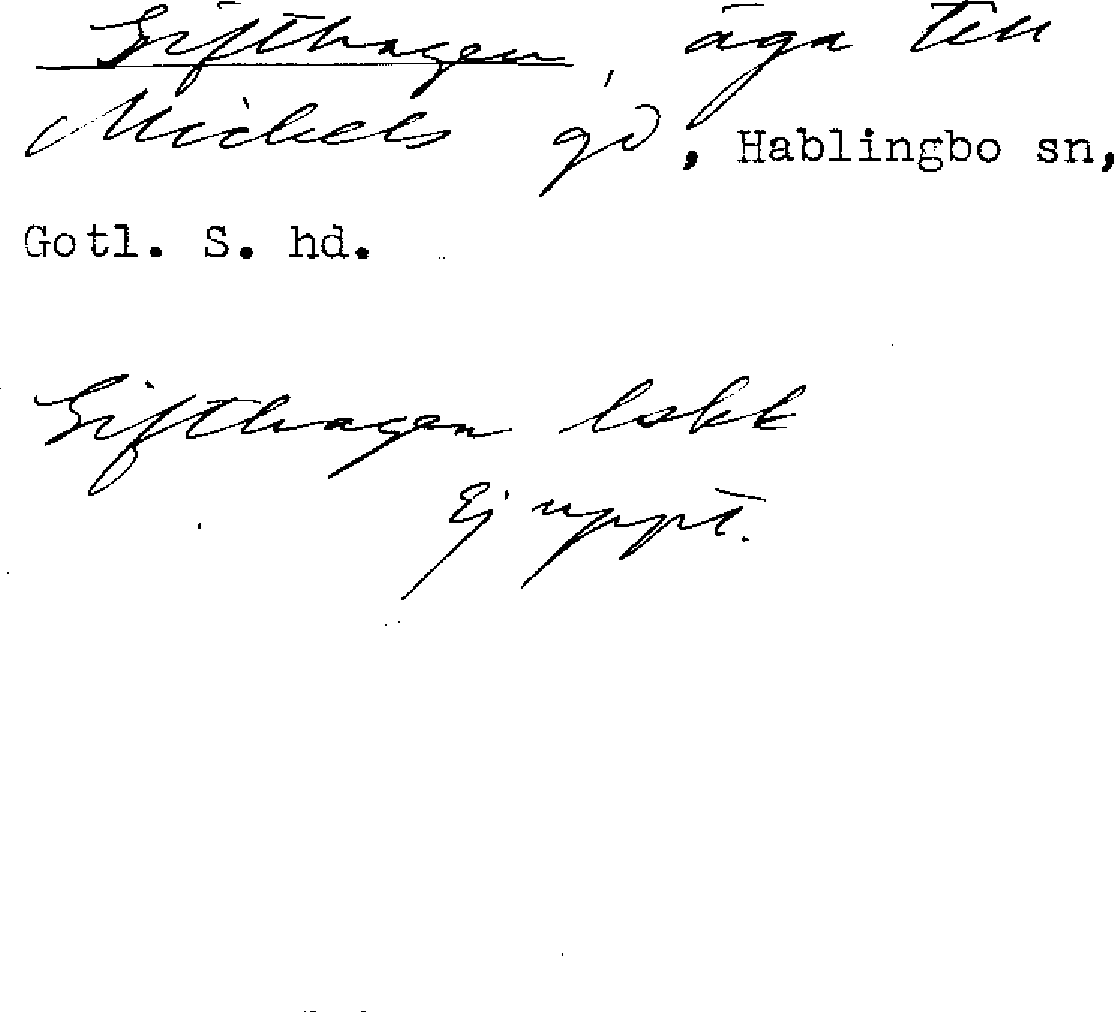 Gifthagen, äga till
Mickels gd, Hablingbo sn,
Gotl. S. hd.
Gifthagen lskk
Ej uppt.